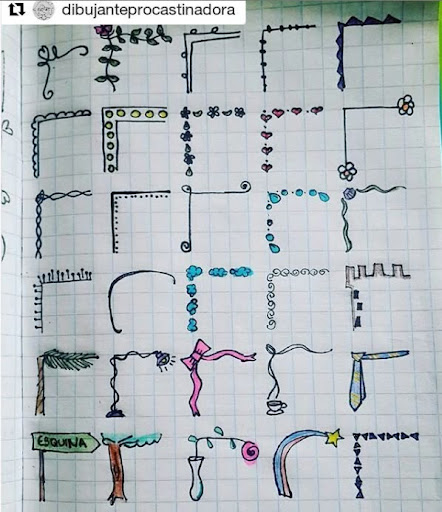 dibujanteprocastinadora
ESQUINA